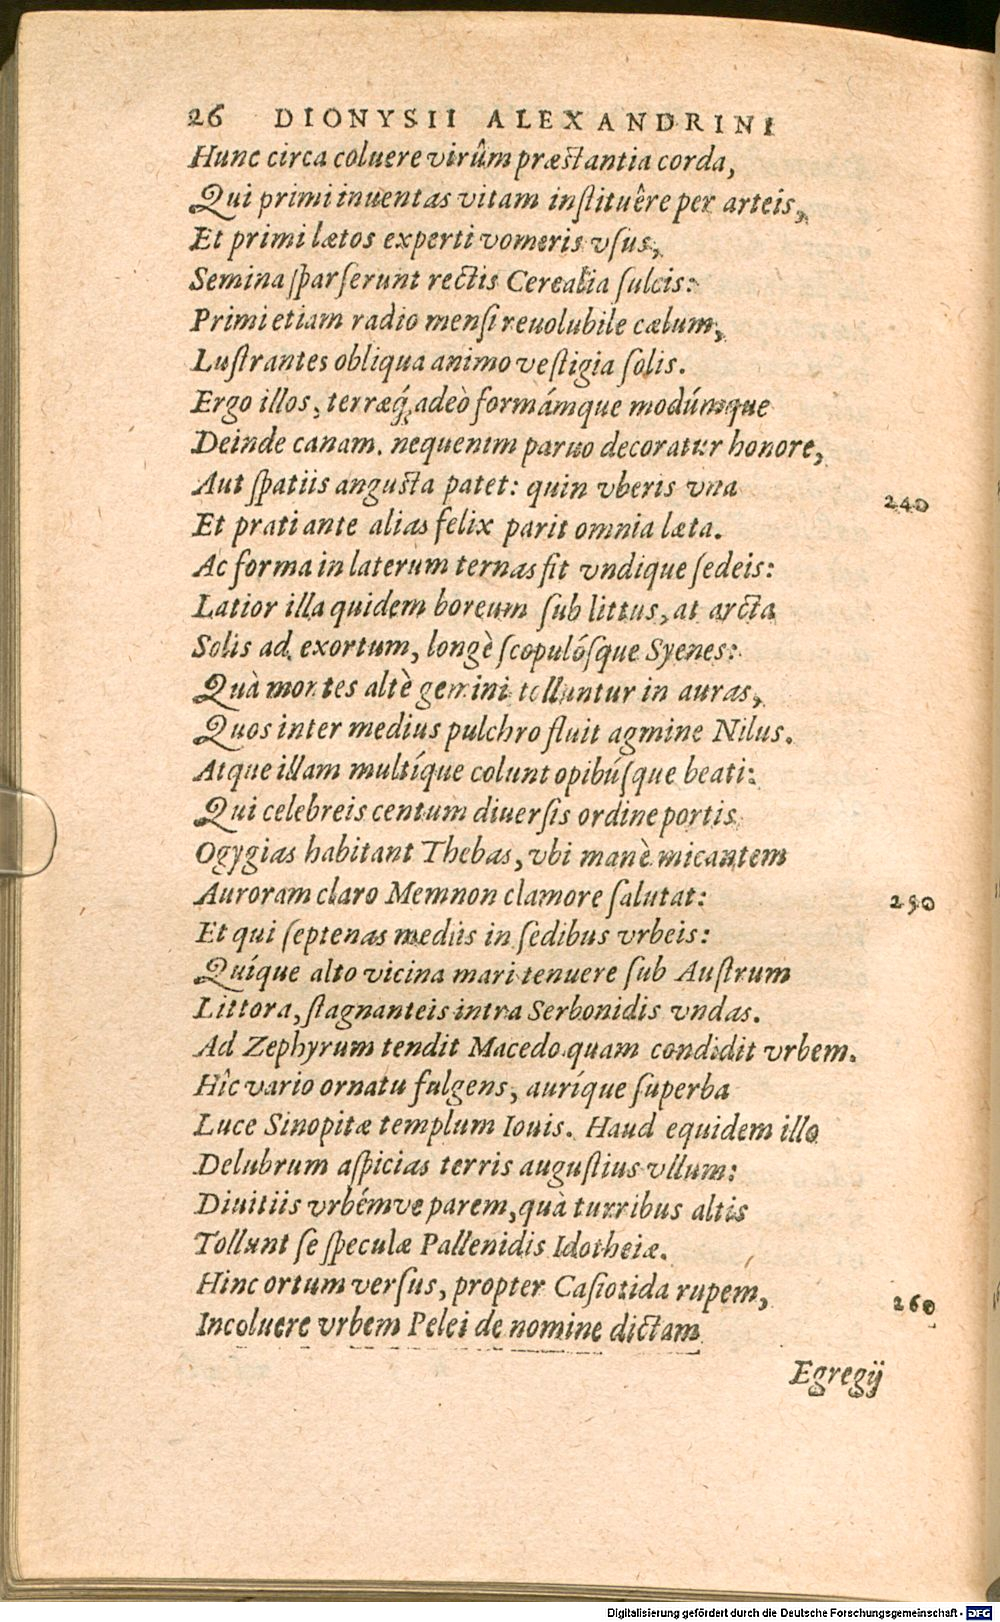 26 DIONYSII ALEXANDRINI
Hunc circa coluere virûm præstantia corda,
Qui primi inuentas vitam instituêre per arteis,
Et primi lætos experti vomeris vsus,
Semina sparserunt rectis Cerealia sulcis:
Primi etiam radio mensi reuolubile cælum,
Lustrantes obliqua animo vestigia solis.
Ergo illos, terræq́; adeò formámque modúmque
Deinde canam. neque enim paruo decoratur honore,
Aut spatiis angusta patet: quin vberis vna
240
Et prati ante alias felix parit omnia læta.
Ac forma in laterum ternas fit vndique sedeis:
Latior illa quidem boreum sub littus, at arcta
Solis ad exortum, longè scopulósque Syenes:
Quà montes altè gemini tolluntur in auras,
Quos inter medius pulchro fluit agmine Nilus.
Atque illam multíque colunt opibúsque beati:
Qui celebreis centum diuersis ordine portis
Ogygias habitant Thebas, vbi manè micantem
Auroram claro Memnon clamore salutat:
250
Et qui septenas mediis in sedibus vrbeis:
Quíque alto vicina mari tenuere sub Austrum
Littora, stagnanteis intra Serbonidis vndas.
Ad Zephyrum tendit Macedo quam condidit vrbem.
Hîc vario ornatu fulgens, auríque superba
Luce Sinopitæ templum Iouis. Haud equidem illo
Delubrum aspicias terris augustius vllum:
Diuitiis vrbémve parem, quà turribus altis
Tollunt se speculæ Pallenidis Idotheiæ.
Hinc ortum versus, propter Casiotida rupem,
260
Incoluere vrbem Pelei de nomine dictam
Egregij
Digitalisierung gefördert durch die Deutsche Forschungsgemeinschaft - DFG